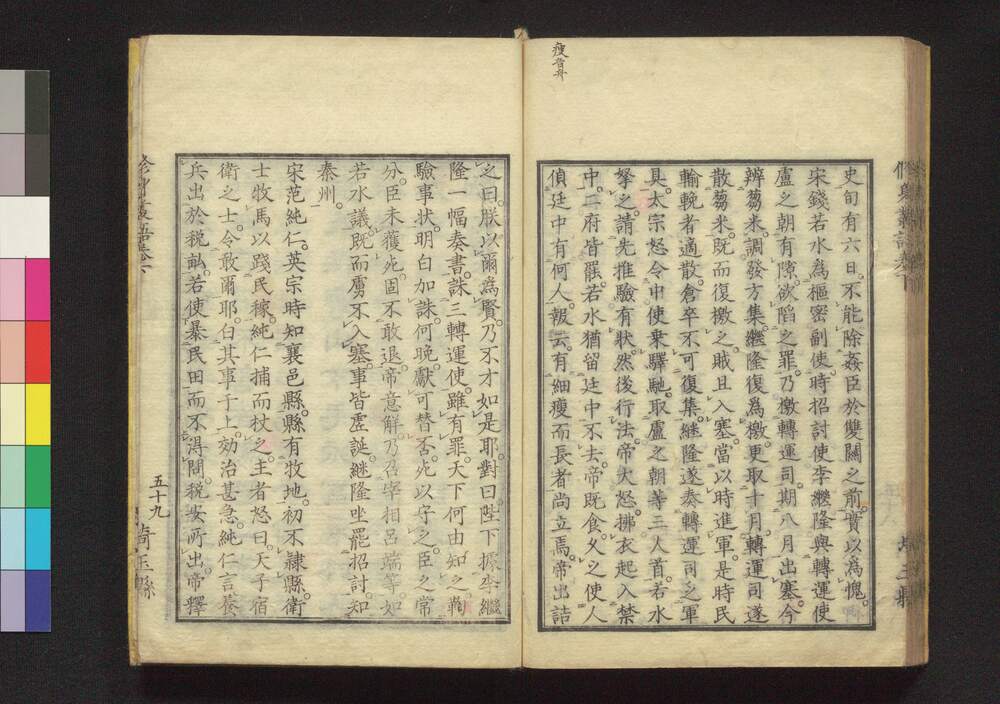 瘦音舟
史旬有六日。不能除姦臣於雙闕之前。貴以為愧。
宋錢若水為樞密副使。時招討使李繼隆與轉運使
盧之朝有隙。欲陷之罪。乃檄轉運司。期八月出塞。今
辨芻米。調發方集。繼隆復為檄。更取十月。轉運司遂
散芻米。既而復檄之。賊且入塞。當以時進軍。是時民
輸輓者適散。倉卒不可復集。繼隆遂奏轉運司乏軍
具。太宗怒。令中使乗驛馳。取盧之朝等三人首。若水
拏之請先推驗有狀。然後行法。帝大怒。拂衣起入禁
中。二府皆罷。若水猶留廷中不去。帝既食久之。使人
偵廷中有何人。報云。有細瘦而長者尚立焉。帝出詰
之曰。朕以爾為賢。乃不才如是耶。對曰。陛下據李繼
隆一幅奏書。誅三轉運使。雖有罪。天下何由知之。鞫
驗事狀。明白加誅何晩。獻可替否。死以守之。臣之常
分。臣未獲死。固不敢退。帝意解。乃召宰相呂端等。如
若水議。既而虜不入塞。事皆虛誕。繼隆坐罷招討。知
秦州。
宋范純仁。英宗時知襄邑縣。縣有牧地。初不隸縣。衛
士牧馬以踐民稼。純仁捕而杖之。主者怒曰。天子宿
衛之士。令敢爾耶。白其事于上。劾治甚急。純仁言。養
兵出於稅畝。若使暴民田而不得問。稅安所出。帝釋
五十九